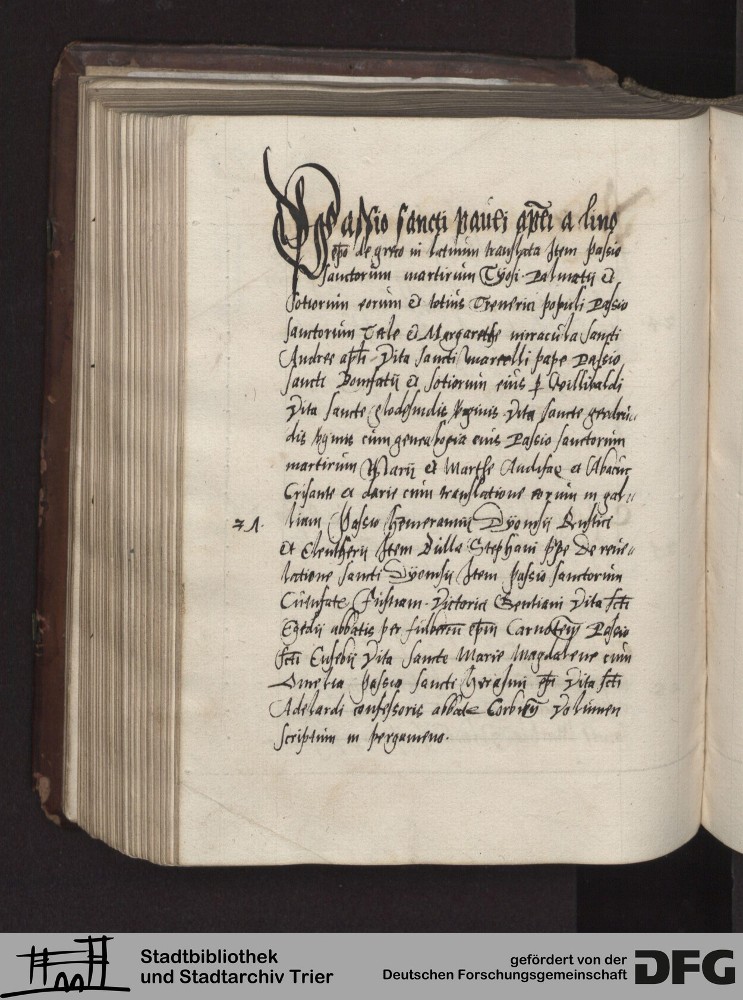 Passio sancti pauli apli a lino
epo de greco in latinum translata Item passio
sanctorum martirum Tyrsi Palmatij et
sotiorum eorum et totius Treuerici populi Passio
sanctorum Tecle et Margarethe mirracula sancti
Andree apli Vita sancti marcelli pape Passio
sancti Bonifatij et sotiorum eius p Willibaldi
Vita sancte glodesindis virginis Vita sancte gerdru
dis virginis cum genealogia eius Passio sanctorum
martirum Marij et Marthe Audifax et Abacuc
Crisante et darie cum translatione eorum in gal
21.
liam Passio Dyonisij Rustici
et Eleutherij Item Bulla Stephani ppe De reue
latione sancti Dyonisij Item passio sanctorum
Victorici Gentiani Vita scti
Egedij abbatis per epm Carnoten Passio
scti Eusebij Vita sancte Marie Magdalene cum
Omelia passio sancti epi Vita scti
Adelardi confessoris abbate Corbien Volumen
scriptum in pergameno.
Stadtbibliothek
und Stadtarchiv Trier
gefördert von der
Deutschen Forschungsgemeinschaft
DFG